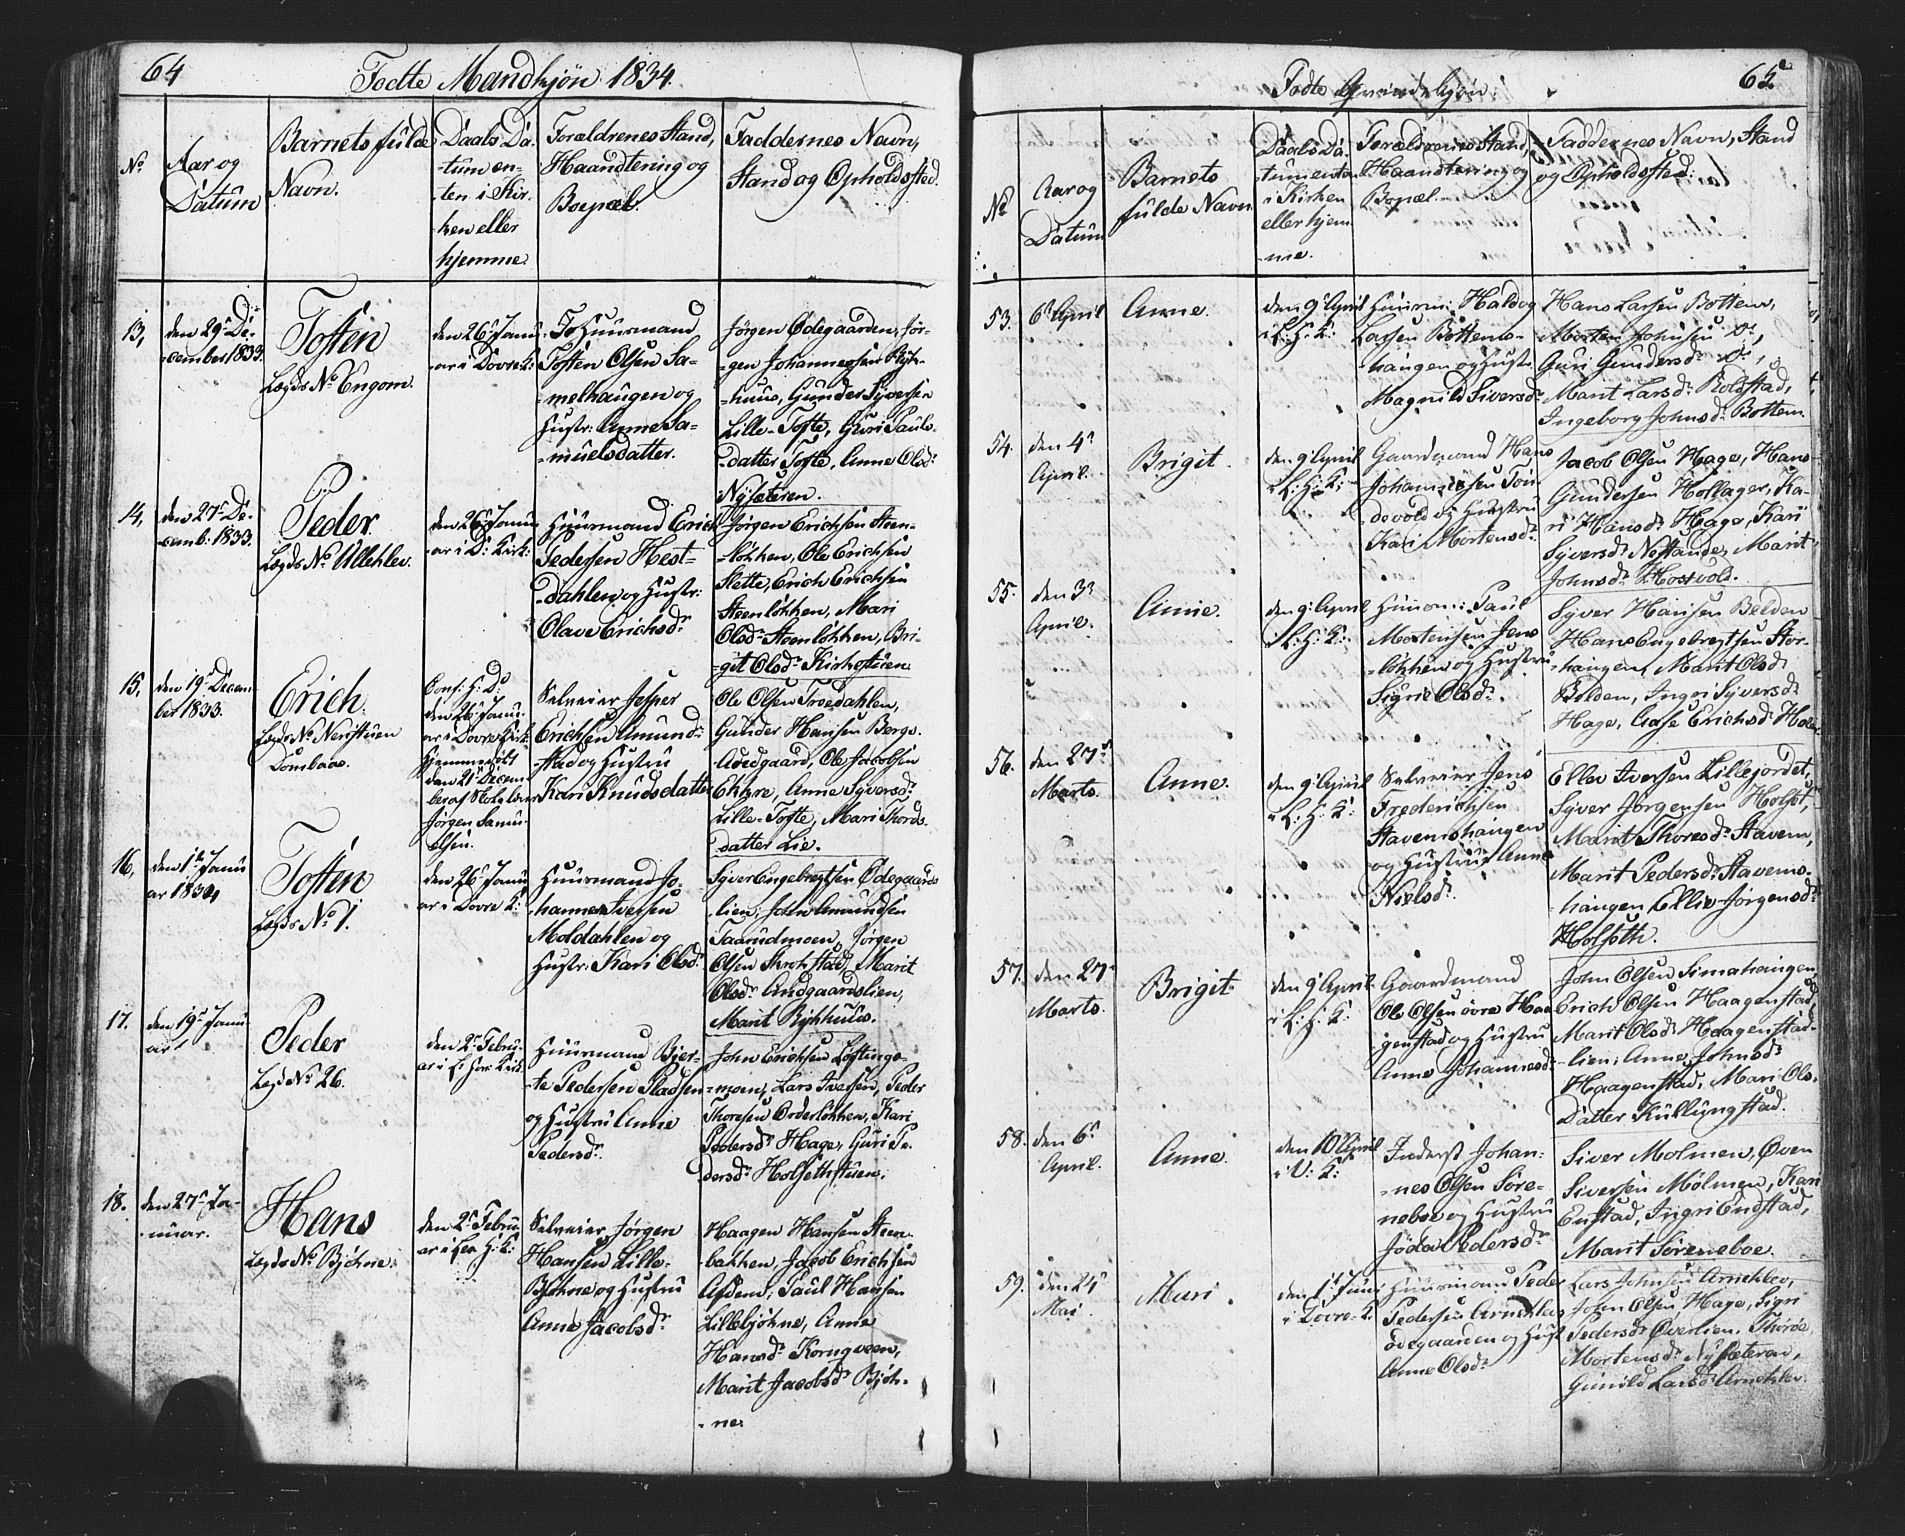 64
Fødte Mandkjøn 1834.
No
Aar og
Datum
Barnets fulde
Navn.
Daabs Da-
-tum en-
-ten i Kir-
-ken eller
hjemme.
Forældrenes Stand,
Haandtering og
Boepæl.
Faddernes Navn,
Stand og Opholdssted.
13,
den 29de De-
-cember 1833.
Tosten
Lægds No Engom.
den 26de Janu-
-ar i Dovre K:
Huusmand
Tosten Olsen Sa-
-melhaugen og
Hustr: Anne Sa-
-muelsdatter.
Jørgen Ødegaarden, Jør-
-gen Johannessen Rÿk-
-huus, Gunder Syversen
Lille-Tofte, Guri Pauls-
-datter Tofte, Anne Olsdr
Nysæteren.
14,
den 27de De-
-cemb: 1833.
Peder
Lægds No Ullehlev.
den 26de Janu-
-ar i D: Kirk:
Huusmand Erich
Pedersen Hest-
-dahlen og Hustr:
Olave Erichsdr
Jørgen Erichsen Steen-
-løkken, Ole Erichsen
Slette, Erich Erichsen
Steenløkken, Mari
Olsdr Steenløkken, Bri-
-git Olsdr Kirkestuen.
15,
den 19de Decem-
ber 1833.
Erich
Lægds No Neristuen
Dombaas.
Conf: H: D:
den 26de Janu-
ar i Dovre Kirk:
Hjemmedøbt
den 21de Decem-
ber af Skolelærer
Jørgen Samu-
elsen.
Selveier Jesper
Erichsen Amund-
-stad og Hustru
Kari Knudsdatter
Ole Olsen Troedahlen,
Gunder Hansen Bergs-
Ole Jacobsen
Ekkre, Anne Syversdr
Lille-Tofte, Mari Thords-
datter Lie.
16,
den 1ste Janu-
ar 1834
Tosten
Lægds No 1.
den 26de Janu-
ar i Dovre K:
Huusmand Jo-
-hannes Iversen
Moldahlen og
Hustr: Kari Olsdr
Syver Engebregtsen Ødegaards-
-lien, John Amundsen
Taarudmoen, Jørgen
Olsen Skrokstad, Marit
Olsdr Andgaardslien,
Marit Rykhuus.
17.
den 19de Janu-
ar
Peder
Lægds No 26.
den 2den Febru-
ar i
Huusmand Bjer-
-te Pedersen Pladsen
og Hustru Anne
Pedersdr
John Erichsen Løftings-
-moen, Lars Iversen, Peder
Thoresen Orderløkken, Kari
Pedersdr Hage, Guri Pe-
dersdr Holsethstuen.
18.
den 27de Ja-
-nuar.
Hans
Lægds No Bjøkne.
den 2den Febru-
ar i Les: H: K:
Selveier Jørgen
Hansen Lille-
Bjøkne og Hustru
Anne Jacobsdr
Haagen Hansen Steen-
bakken, Jacob Erichsen
Asdem, Paul Hansen
Lillebjøkne, Anne
Hansdr Kornqveen,
Marit Jacobsdr Bjøk-
-ne.
65.
Fødte Qvindekjøn.
No
Aar og
Datum
Barnets
fulde Navn
Daabs Da-
-tum enten
i Kirken
eller hjem-
-me.
Forældrenes Stand,
Haandtering og
Bopæl.
Faddernes Navn, Stand
og Opholdssted.
53.
6te April
Anne.
den 9de April
i L: H: K:
Huusm: Haldog
Larsen Bottems-
-haugen og Hustr:
Magnild Siversdr
Hans Larsen Bottem,
Morten Johnsen do,
Guri Gundersdr do,
Marit Larsdr Bolstad,
Ingeborg Johnsdr Bottem.
54.
den 4de
April.
Brigit.
den 9de April
i L: H: K:
Gaardmand Hans
Johannessen Tøn-
devold og Hustru
Kari Mortensdr
Jacob Olsen Hage, Hans
Gundersen Hollager, Ka-
ri Hansdr Hage, Kari
Syversdr Nostande, Marit
Johnsdr Hosvold.
55.
den 3de
April.
Anne.
den 9de April
i L: H: K:
Huusm: Paul
Mortensen Jens-
-løkken og Hustru
Sigrie Olsdr.
Syver Hansen Belden
Hans Engebregtsen Stor-
-haugen, Marit Olsdr
Belden, Ingri Syversdr
Hage, Aase Erichsdr
56.
den 27de
Marts.
Anne.
den 9de April
i L: H: K:
Selveier Jens
Frederichsen
Stavemshaugen
og Hustrue Anne
Nielsdr
Ellev Iversen Lillejordet,
Syver Jørgensen Holset,
Marit Thoresdr Stavem,
Marit Pedersdr Stavems-
-haugen Ellie Jørgensdr
Holseth.
57.
den 27de
Marts.
Brigit
den 9de April
i L: H: K:
Gaardmand
Ole Olsen øvre Haa-
genstad og Hustru
Anne Johannesdr
John Olsen Simahaugen
Erich Olsen Haagenstad,
Marit Olsdr Haagenstad-
-lien, Anne Johnsdr
Haagenstad, Mari Ols-
Datter Kullungstad.
58.
den 6te
April.
Anne.
den 10de April
i V: K:
Inderst Johan-
-nes Olsen Søre-
-neboe og Hustru
Jøda Pedersdr
Siver Molmen, Øven
Siversen Mølmen, Kari
Enstad, Ingri Endstad,
Marit Søreneboe.
59.
den 24de
Mai.
Mari.
den 1ste Juni
i Dovre K:
Huusmand Peder
Pedersen Arneklev
ødegaarden og Hust
Anne Olsdr
Lars Johnsen Arneklev,
John Olsen Hage, Sigri
Pedersdr Øverlien, Thorøe
Mortensdr Nysæteran,
Gunild Larsdr Arneklev.